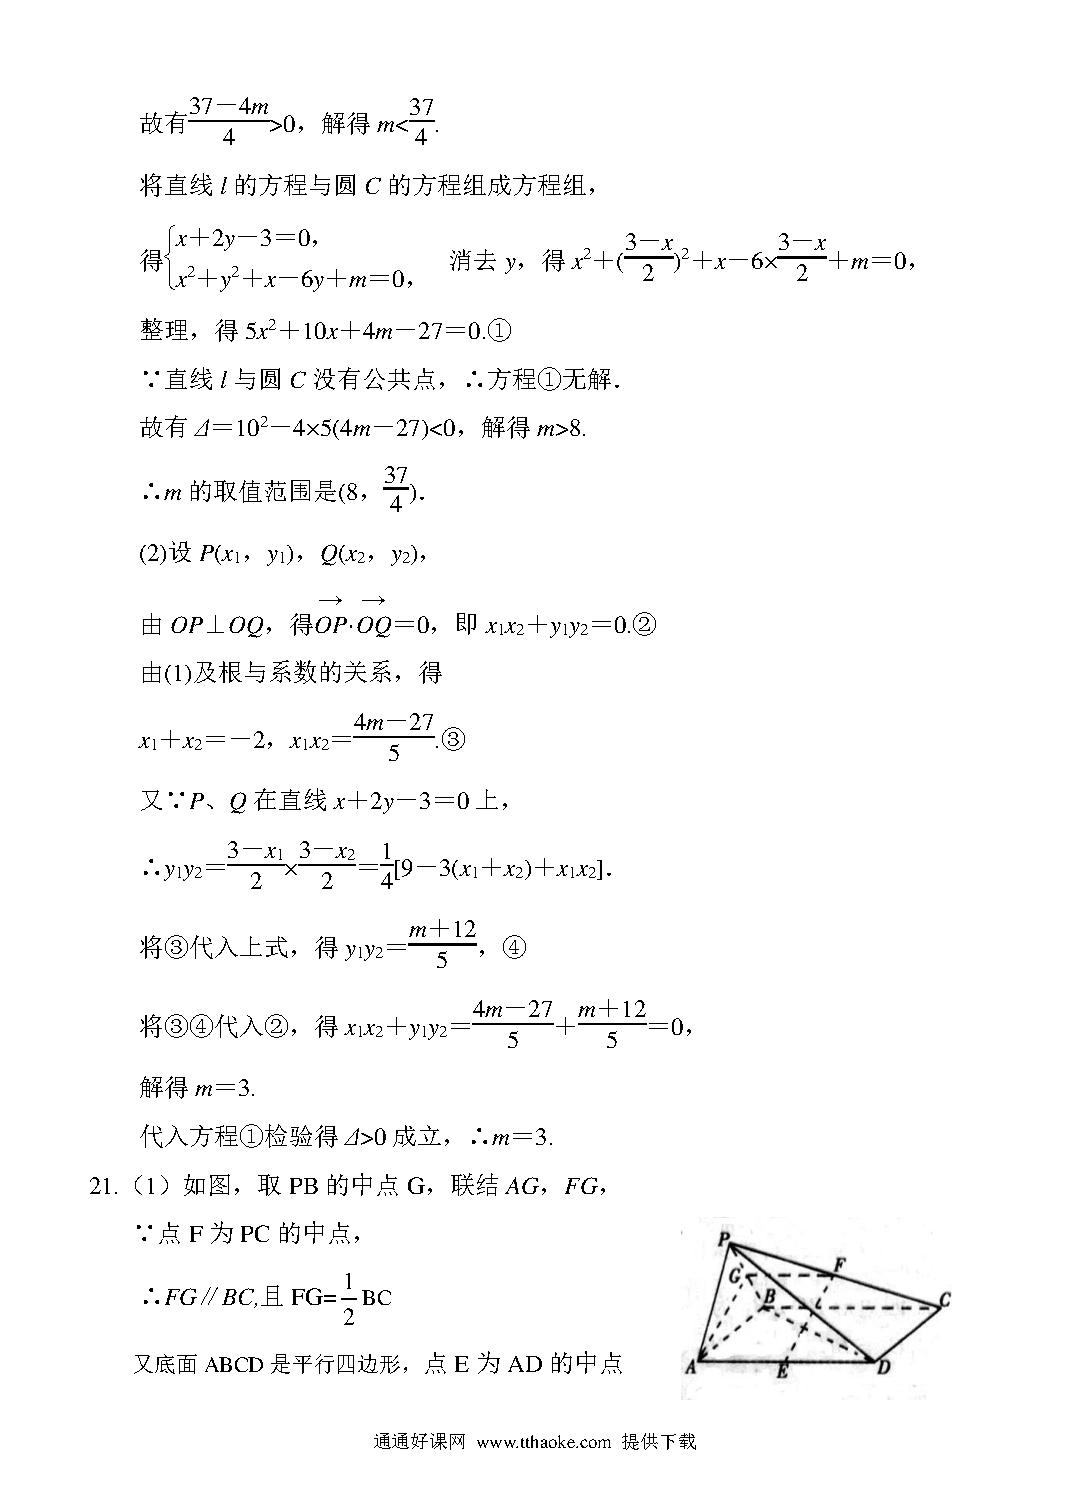 故有(37－4m)/4>0，解得 m<37/4.
将直线 l 的方程与圆 C 的方程组成方程组，
得{x＋2y－3＝0，x²＋y²＋x－6y＋m＝0， 消去 y，得 x²＋((3－x)/2)²＋x－6×(3－x)/2＋m＝0，
整理，得 5x²＋10x＋4m－27＝0.①
∵直线 l 与圆 C 没有公共点，∴方程①无解．
故有 Δ＝10²－4×5(4m－27)<0，解得 m>8.
∴m 的取值范围是(8，37/4)．
(2)设 P(x₁，y₁)，Q(x₂，y₂)，
由 OP⊥OQ，得→OP·→OQ＝0，即 x₁x₂＋y₁y₂＝0.②
由(1)及根与系数的关系，得
x₁＋x₂＝－2，x₁x₂＝(4m－27)/5.③
又∵P、Q 在直线 x＋2y－3＝0 上，
∴y₁y₂＝(3－x₁)/2×(3－x₂)/2＝1/4[9－3(x₁＋x₂)＋x₁x₂]．
将③代入上式，得 y₁y₂＝(m＋12)/5，④
将③④代入②，得 x₁x₂＋y₁y₂＝(4m－27)/5＋(m＋12)/5＝0，
解得 m＝3.
代入方程①检验得 Δ>0 成立，∴m＝3.
21.（1）如图，取 PB 的中点 G，联结 AG，FG，
∵点 F 为 PC 的中点，
∴FG∥BC,且 FG=1/2 BC
又底面 ABCD 是平行四边形，点 E 为 AD 的中点
P
F
G
B
C
A
E
D
通通好课网 www.tthaoke.com 提供下载